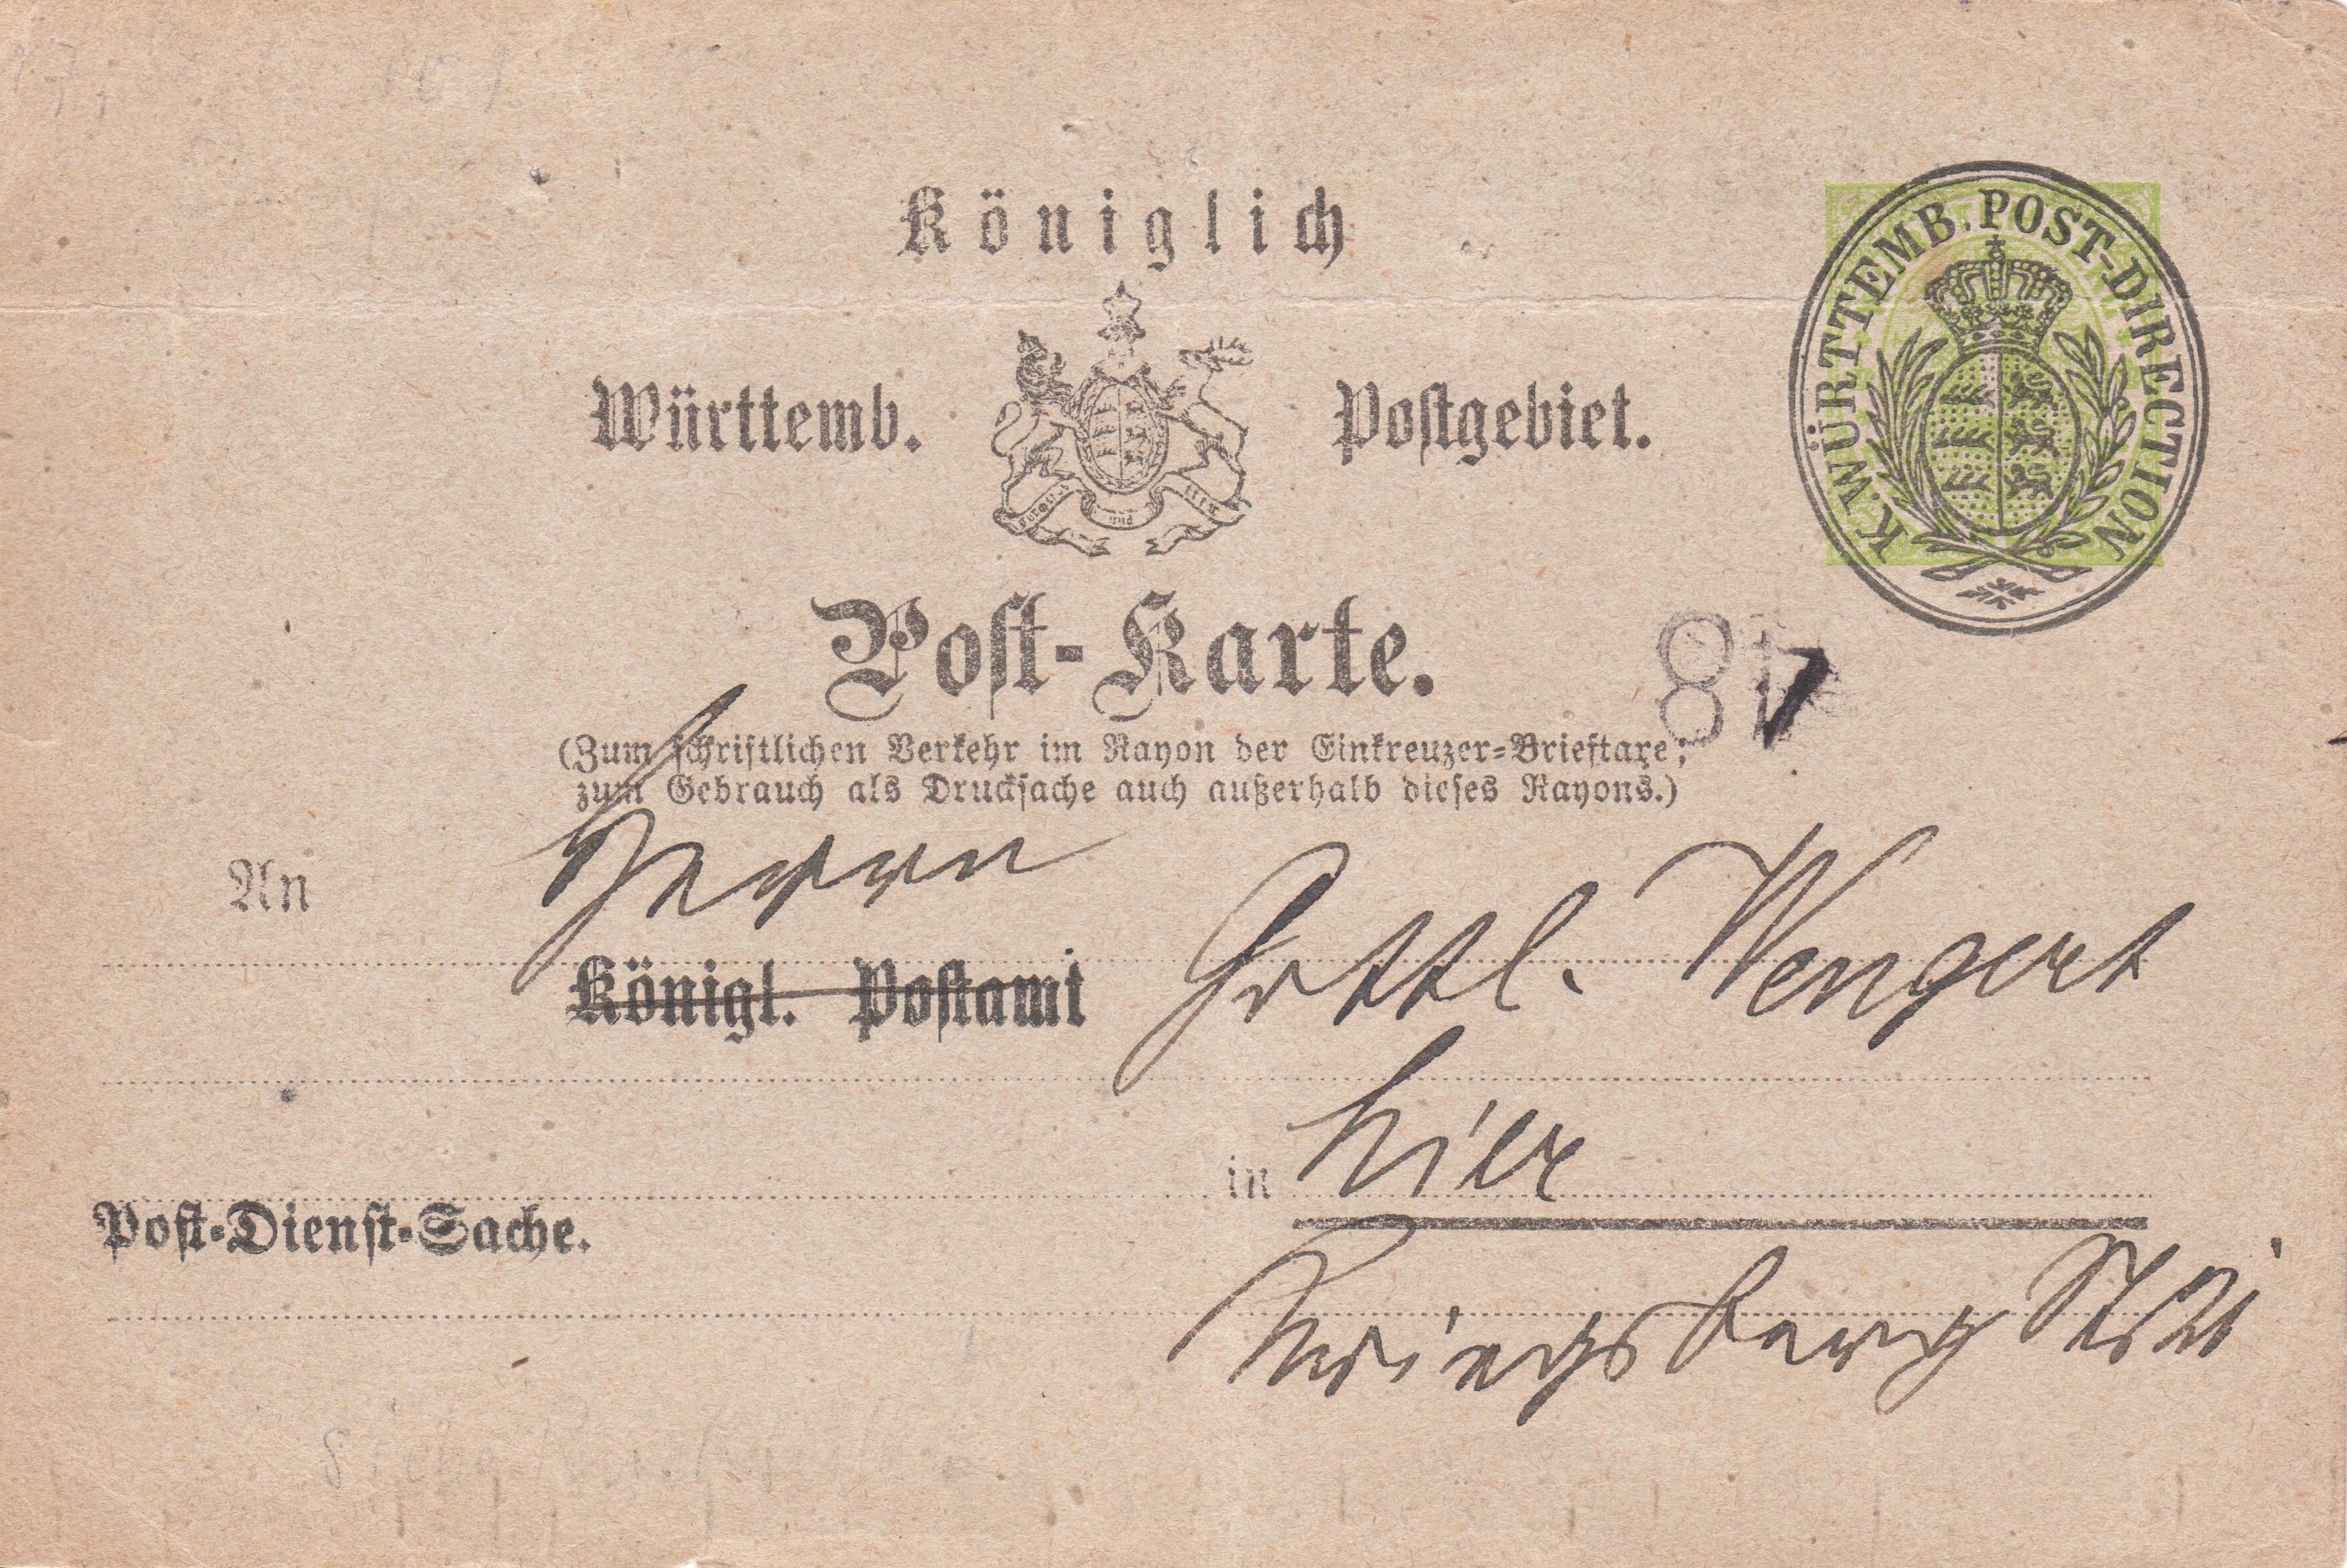 Königlich
Württemb. Postgebiet.
K. WÜRTTEMB. POST-DIRECTION
Furchtlos und treu
Post-Karte.
48
(Zum schriftlichen Verkehr im Rayon der Einkreuzer-Brieftaxe;
zum Gebrauch als Drucksache auch außerhalb dieses Rayons.)
An Herrn
Königl. Postamt Gottl. Wengert
in hier
Post-Dienst-Sache.
Kriegsberg Str